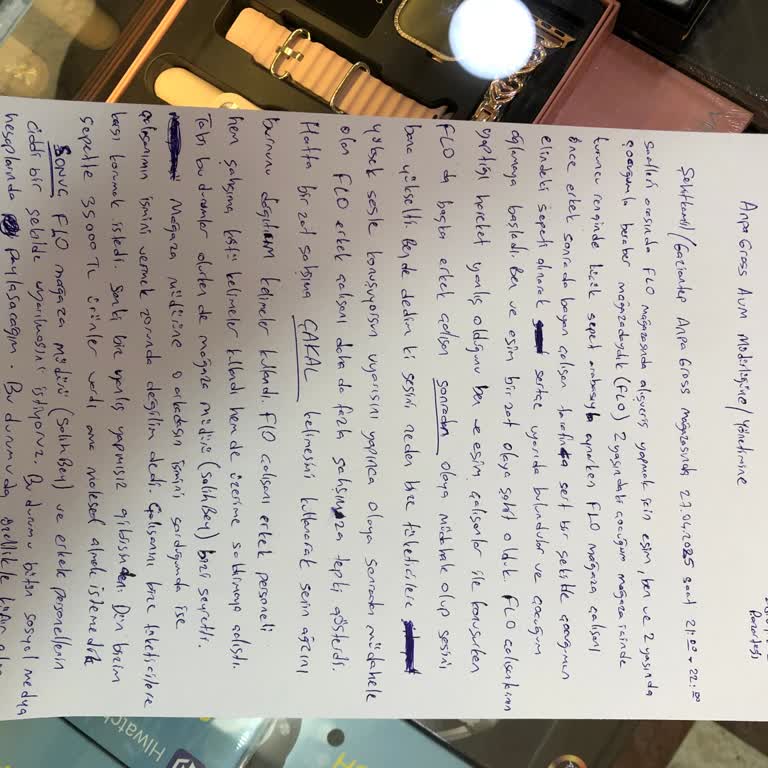 Pazartesi
Anpa Gross Avm Müdürlüğüne / Yönetimine
Şehitkamil/Gaziantep Anpa Gross mağazasında 27.04.2025 saat 21:00 - 22:00
saatleri arasında FLO mağazasında alışveriş yapmak için eşim, ben ve 2 yaşında
çocuğumla beraber mağazadaydık (FLO) 2 yaşındaki çocuğum mağaza içinde
turuncu renginde küçük sepet arabasıyla oynarken FLO mağaza çalışanı
önce erkek sonrada bayan çalışan tarafından sert bir şekilde çocuğumun
elindeki sepeti alınarak sertçe uyarıda bulundular ve çocuğum
ağlamaya başladı. Ben ve eşim bizzat olaya şahit olduk. FLO çalışanların
yaptığı hareket yanlış olduğunu ben ve eşim çalışanlar ile konuşurken
FLO da başka erkek çalışan sonradan olaya müdahale olup sesini
bana yükseltti. Bende dedim ki sesini neden bize tüketicilere
yüksek sesle konuşuyorsun uyarısını yapınca olaya sonradan müdahele
olan FLO erkek çalışanı daha da fazla şahsımıza tepki gösterdi.
Hatta bizzat şahsıma ÇAKAL kelimesini kullanarak senin ağzını
burnunu dağıtırım kelimeler kullandı. FLO çalışanı erkek personeli
hem şahsıma kötü kelimeler kullandı hemde üzerime saldırmaya çalıştı.
Tabi bu durumlar olurken de mağaza müdürü (Salih Bey) bizi seyretti.
Mağaza müdürüne o arkadaşın ismini sorduğumda ise
çalışanımın ismini vermek zorunda değilim dedi. Çalışanını bize tüketicilere
karşı korumak istedi. Sanki biz yanlış yapmışız gibisinden. Dün bizim
sepette 35000 TL ürünler vardı ama malesef almak istemedik
SONUÇ FLO mağaza müdürü (Salih Bey) ve erkek personellerin
ciddi bir şekilde uyarılmasını istiyoruz. Bu durumu bütün sosyal medya
hesaplarında paylaşacağım. Bu durumuda özellikle
Hiwatch